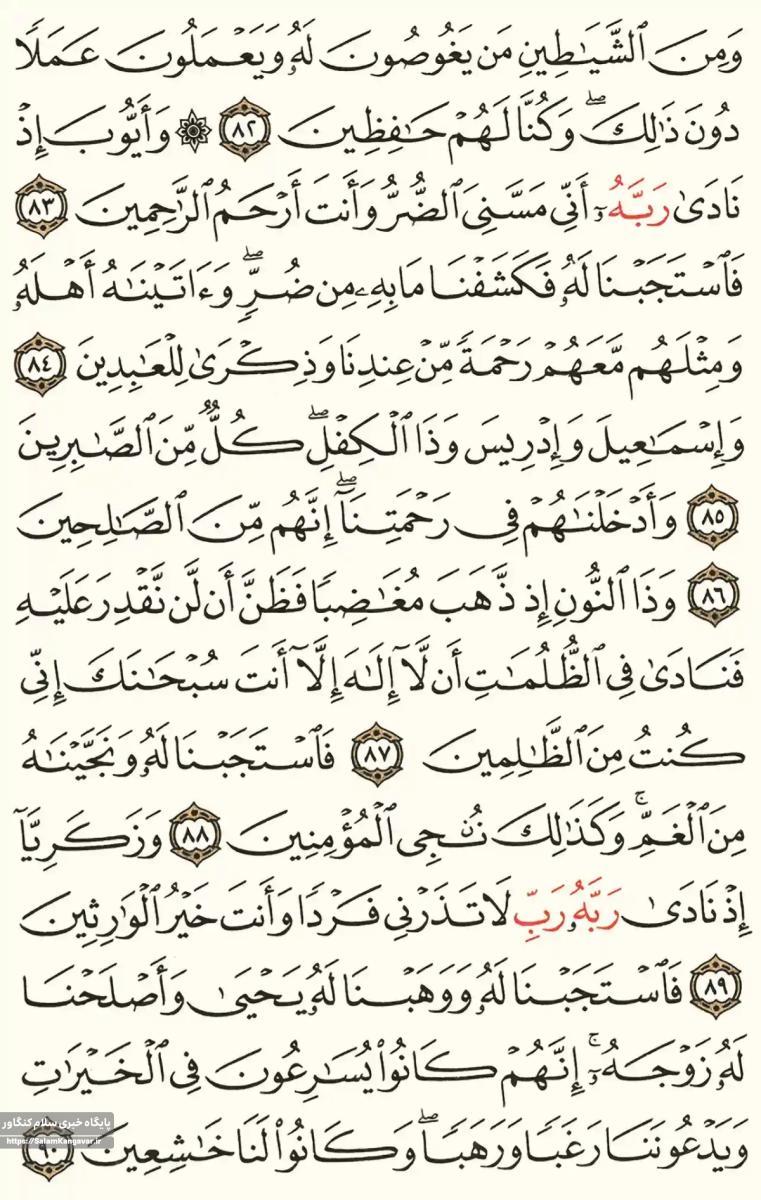 وَمِنَ ٱلشَّيَٰطِينِ مَن يَغُوصُونَ لَهُۥ وَيَعۡمَلُونَ عَمَلٗا
دُونَ ذَٰلِكَۖ وَكُنَّا لَهُمۡ حَٰفِظِينَ ٨٢ ۞ وَأَيُّوبَ إِذۡ
نَادَىٰ رَبَّهُۥٓ أَنِّي مَسَّنِيَ ٱلضُّرُّ وَأَنتَ أَرۡحَمُ ٱلرَّٰحِمِينَ ٨٣
فَٱسۡتَجَبۡنَا لَهُۥ فَكَشَفۡنَا مَا بِهِۦ مِن ضُرّٖۖ وَءَاتَيۡنَٰهُ أَهۡلَهُۥ
وَمِثۡلَهُم مَّعَهُمۡ رَحۡمَةٗ مِّنۡ عِندِنَا وَذِكۡرَىٰ لِلۡعَٰبِدِينَ ٨٤
وَإِسۡمَٰعِيلَ وَإِدۡرِيسَ وَذَا ٱلۡكِفۡلِۖ كُلّٞ مِّنَ ٱلصَّٰبِرِينَ
٨٥ وَأَدۡخَلۡنَٰهُمۡ فِي رَحۡمَتِنَآۖ إِنَّهُم مِّنَ ٱلصَّٰلِحِينَ
٨٦ وَذَا ٱلنُّونِ إِذ ذَّهَبَ مُغَٰضِبٗا فَظَنَّ أَن لَّن نَّقۡدِرَ عَلَيۡهِ
فَنَادَىٰ فِي ٱلظُّلُمَٰتِ أَن لَّآ إِلَٰهَ إِلَّآ أَنتَ سُبۡحَٰنَكَ إِنِّي
كُنتُ مِنَ ٱلظَّٰلِمِينَ ٨٧ فَٱسۡتَجَبۡنَا لَهُۥ وَنَجَّيۡنَٰهُ
مِنَ ٱلۡغَمِّۚ وَكَذَٰلِكَ نُـۨجِي ٱلۡمُؤۡمِنِينَ ٨٨ وَزَكَرِيَّآ
إِذۡ نَادَىٰ رَبَّهُۥ رَبِّ لَا تَذَرۡنِي فَرۡدٗا وَأَنتَ خَيۡرُ ٱلۡوَٰرِثِينَ
٨٩ فَٱسۡتَجَبۡنَا لَهُۥ وَوَهَبۡنَا لَهُۥ يَحۡيَىٰ وَأَصۡلَحۡنَا
لَهُۥ زَوۡجَهُۥٓۚ إِنَّهُمۡ كَانُواْ يُسَٰرِعُونَ فِي ٱلۡخَيۡرَٰتِ
وَيَدۡعُونَنَا رَغَبٗا وَرَهَبٗاۖ وَكَانُواْ لَنَا خَٰشِعِينَ ٩٠
پایگاه خبری سلام کنگاور
https://SalamKangavar.ir